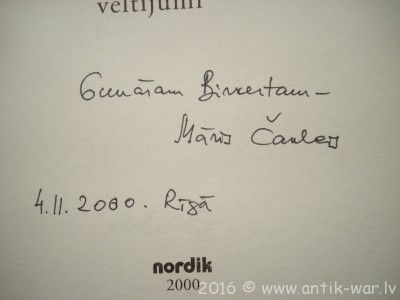 veltījumi
Gunāram Birkertam –
Māris Čaklais
4.11.2000. Rīgā
nordik
2000
2016 © www.antik-war.lv